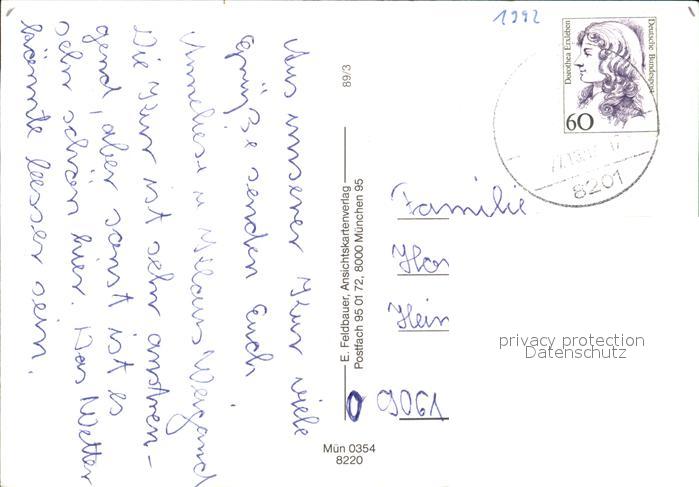 1992
Deutsche Bundespost
Dorothea Erxleben
60
8201
Aus unserer Kur viele
Grüße senden Euch
Anneliese u Klaus Weigand
Die Kur ist sehr anstren-
gend, aber sonst ist es
sehr schön hier. Das Wetter
könnte besser sein.
89/3
E. Feldbauer, Ansichtskartenverlag
Postfach 95 01 72, 8000 München 95
Mün 0354
8220
Familie
Hor
Hein
O 9061
privacy protection
Datenschutz